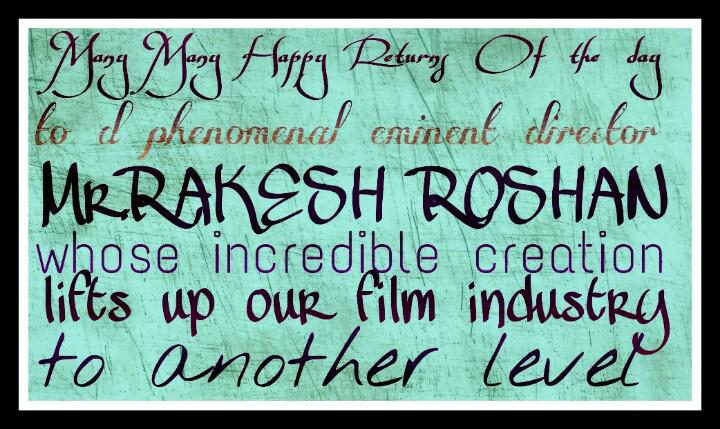 Many Many Happy Returns Of the day
to a phenomenal eminent director
Mr.RAKESH ROSHAN
whose incredible creation
lifts up our film industry
to another level